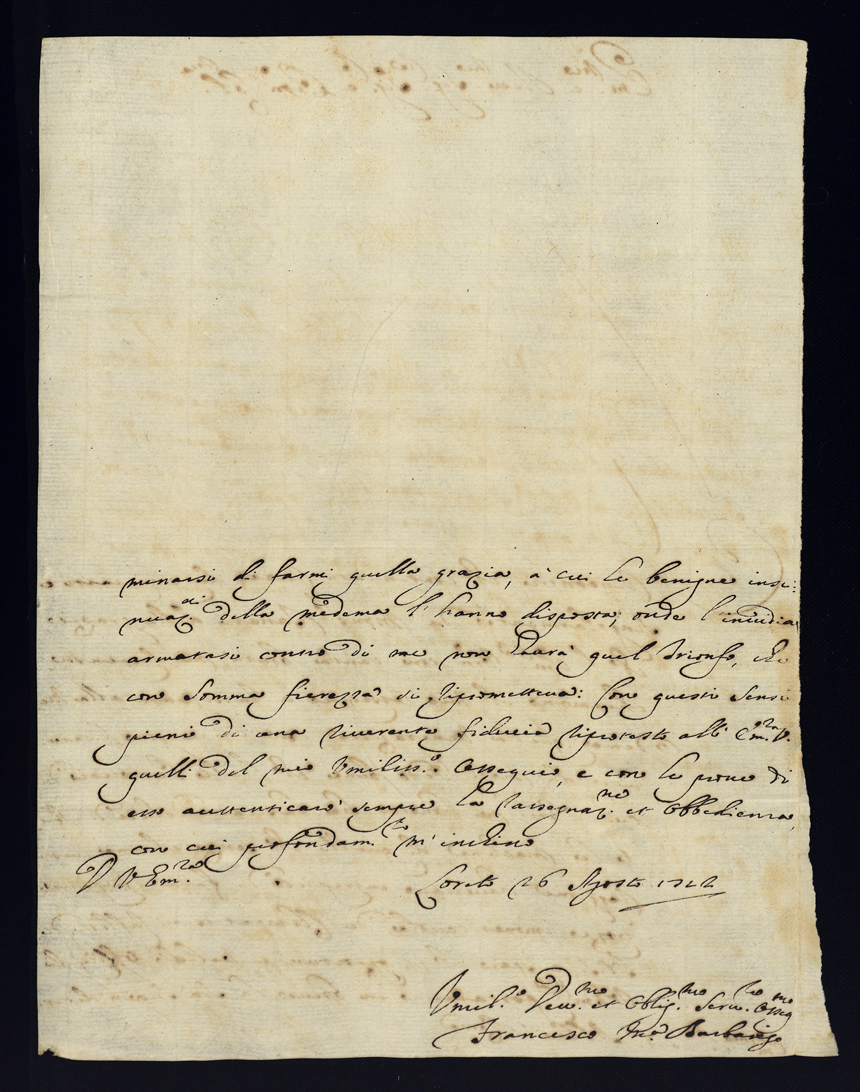 minarsi di farmi quella grazia, à cui le benigne insi:
nuaz.ni della medema l'hanno disposta; onde l'inuidia
armatasi contro di me non haurà quel trionfo, che
con somma fierezza si riprometteua: Con questi sensi
pieni di una riuerente fiducia riprotesto all' Em.za V.
quelli del mio Vmiliss.o ossequio, e con le proue di
esso auttenticarò sempre la rassegnaz.ne et obbedienza,
con cui profondam.te m'inchino
D V Em.za
Loreto 26 Agosto 1722
Vmil.o Deu.mo et Oblig.mo Seru.re Osseq.mo
Francesco Barbarigo